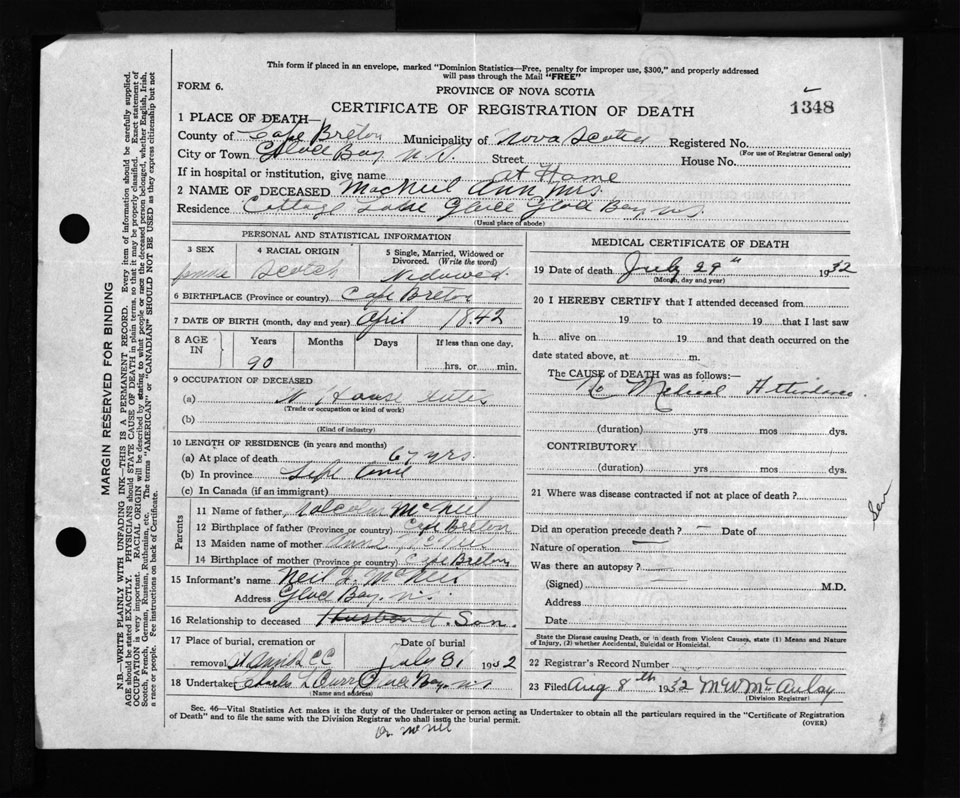 This form if placed in an envelope, marked "Dominion Statistics—Free, penalty for improper use, $300," and properly addressed
will pass through the Mail "FREE"
FORM 6.
PROVINCE OF NOVA SCOTIA
CERTIFICATE OF REGISTRATION OF DEATH
1348
1 PLACE OF DEATH—
County of Cape Breton Municipality of Nova Scotia Registered No.
(For use of Registrar General only)
City or Town Glace Bay N.S. Street House No.
If in hospital or institution, give name at Home
2 NAME OF DECEASED MacNeil Ann Mrs.
Residence Cottage Lane Glace Glace Bay N.S.
(Usual place of abode)
PERSONAL AND STATISTICAL INFORMATION
3 SEX
female
4 RACIAL ORIGIN
Scotch
5 Single, Married, Widowed or
Divorced. (Write the word)
Widowed
6 BIRTHPLACE (Province or country) Cape Breton
7 DATE OF BIRTH (month, day and year) April 1842
8 AGE
IN
Years
90
Months
Days
If less than one day,
hrs. or min.
9 OCCUPATION OF DECEASED
(a) House
(Trade or occupation or kind of work)
(b)
(Kind of industry)
10 LENGTH OF RESIDENCE (in years and months)
(a) At place of death 67 yrs.
(b) In province Life
(c) In Canada (if an immigrant)
Parents
11 Name of father, Malcolm McNeil
12 Birthplace of father (Province or country) Cape Breton
13 Maiden name of mother Annie McNeil
14 Birthplace of mother (Province or country) Cape Breton
15 Informant's name Neil J. McNeil
Address Glace Bay N.S.
16 Relationship to deceased Husband. Son.
17 Place of burial, cremation or
removal St Anns C C
Date of burial
July 31 1932
18 Undertaker Charles L Curry Glace Bay NS
(Name and address)
MEDICAL CERTIFICATE OF DEATH
19 Date of death July 29th 1932
(Month, day and year)
20 I HEREBY CERTIFY that I attended deceased from
19 to 19 that I last saw
h alive on 19 and that death occurred on the
date stated above, at m.
The CAUSE of DEATH was as follows:—
No Medical Attendance
(duration) yrs mos dys.
CONTRIBUTORY
(duration) yrs mos dys.
21 Where was disease contracted if not at place of death?
Did an operation precede death? — Date of
Nature of operation —
Was there an autopsy? —
(Signed) M.D.
Address
Date
State the Disease causing Death, or in death from Violent Causes, state (1) Means and Nature
of Injury, (2) whether Accidental, Suicidal or Homicidal.
22 Registrar's Record Number
23 Filed Aug 8th 1932 McAulay
(Division Registrar)
Sec. 46—Vital Statistics Act makes it the duty of the Undertaker or person acting as Undertaker to obtain all the particulars required in the "Certificate of Registration
of Death" and to file the same with the Division Registrar who shall issue the burial permit.
(OVER)
Dr. McNeil
Sen
MARGIN RESERVED FOR BINDING
N.B.—WRITE PLAINLY WITH UNFADING INK—THIS IS A PERMANENT RECORD. Every item of information should be carefully supplied.
AGE should be stated EXACTLY. PHYSICIANS should STATE CAUSE OF DEATH in plain terms, so that it may be properly classified. Exact statement of
OCCUPATION is very important. RACIAL ORIGIN will be described by stating to what people or race the deceased person belonged, whether English, Irish,
Scotch, French, German, Russian, Ruthenian, etc. The terms "AMERICAN" or "CANADIAN" SHOULD NOT BE USED as they express citizenship but not
a race or people. See instructions on back of Certificate.